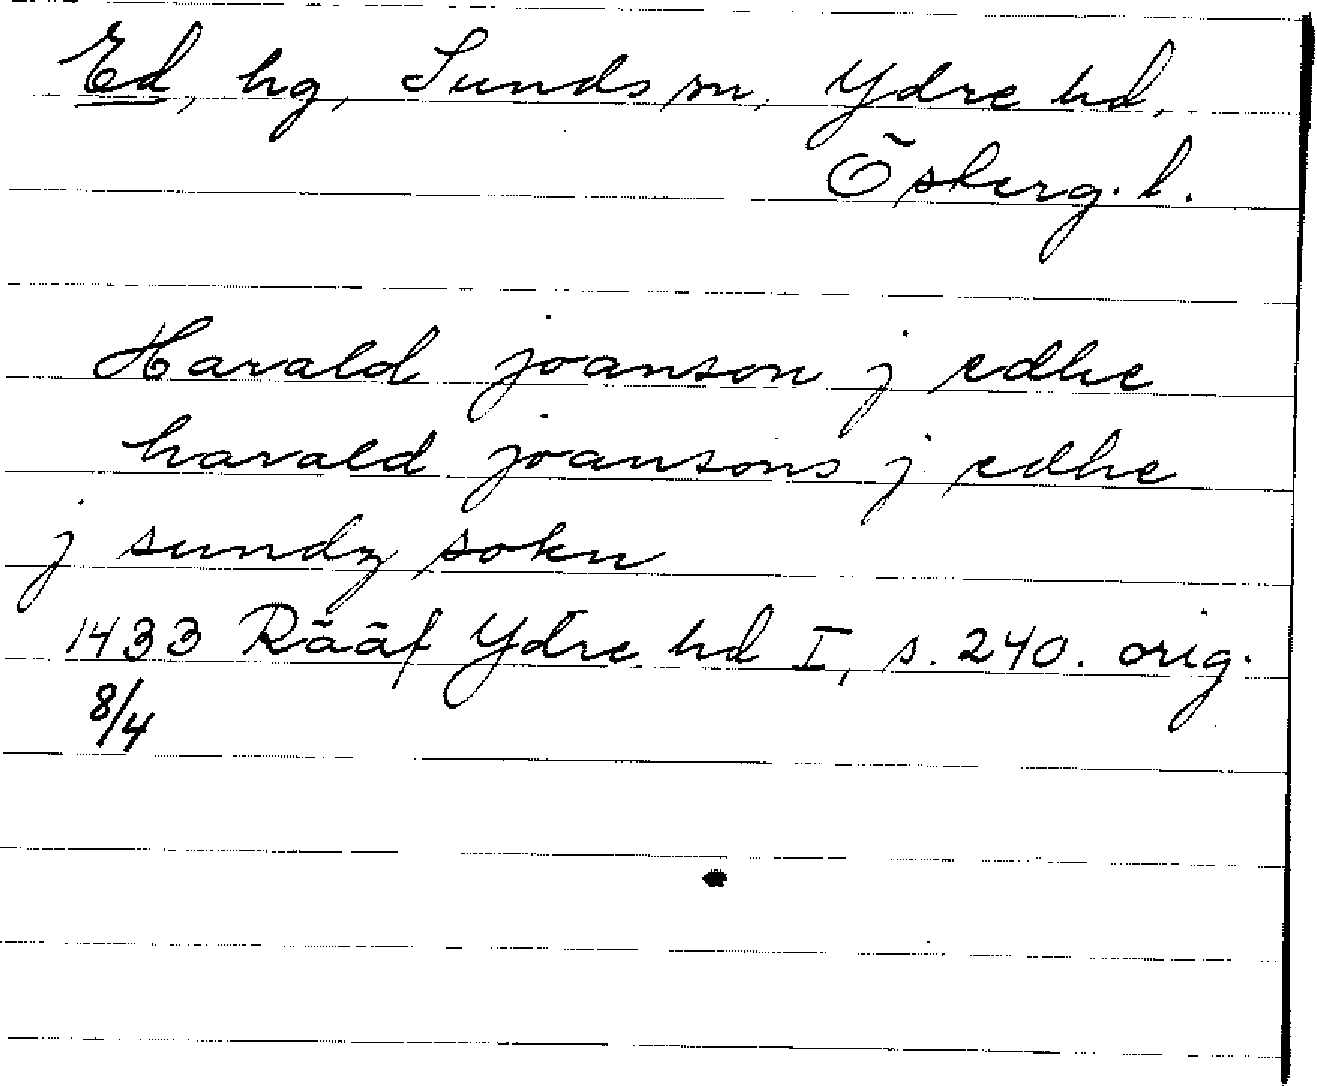 Ed, hg, Sunds sn, Ydre hd,
Ösberg. l.
Harald joanson j edhe
harald joansons j edhe
j sundz sokn
1433 Rääf Ydre hd I, s. 240. orig.
8/4